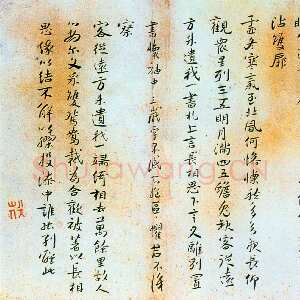 沾雙扉
孟冬寒氣至北風何慘慄愁多知夜長仰
觀眾星列三五明月滿四五蟾兔缺客從遠
方來遺我一書札上言長相思下言久離別置
書懷袖中三歲字不滅一心抱區區懼君不識
察
客從遠方來遺我一端綺相去萬餘里故人
心尚爾文彩雙鴛鴦裁為合歡被著以長相
思緣以結不解以膠投漆中誰能別離此